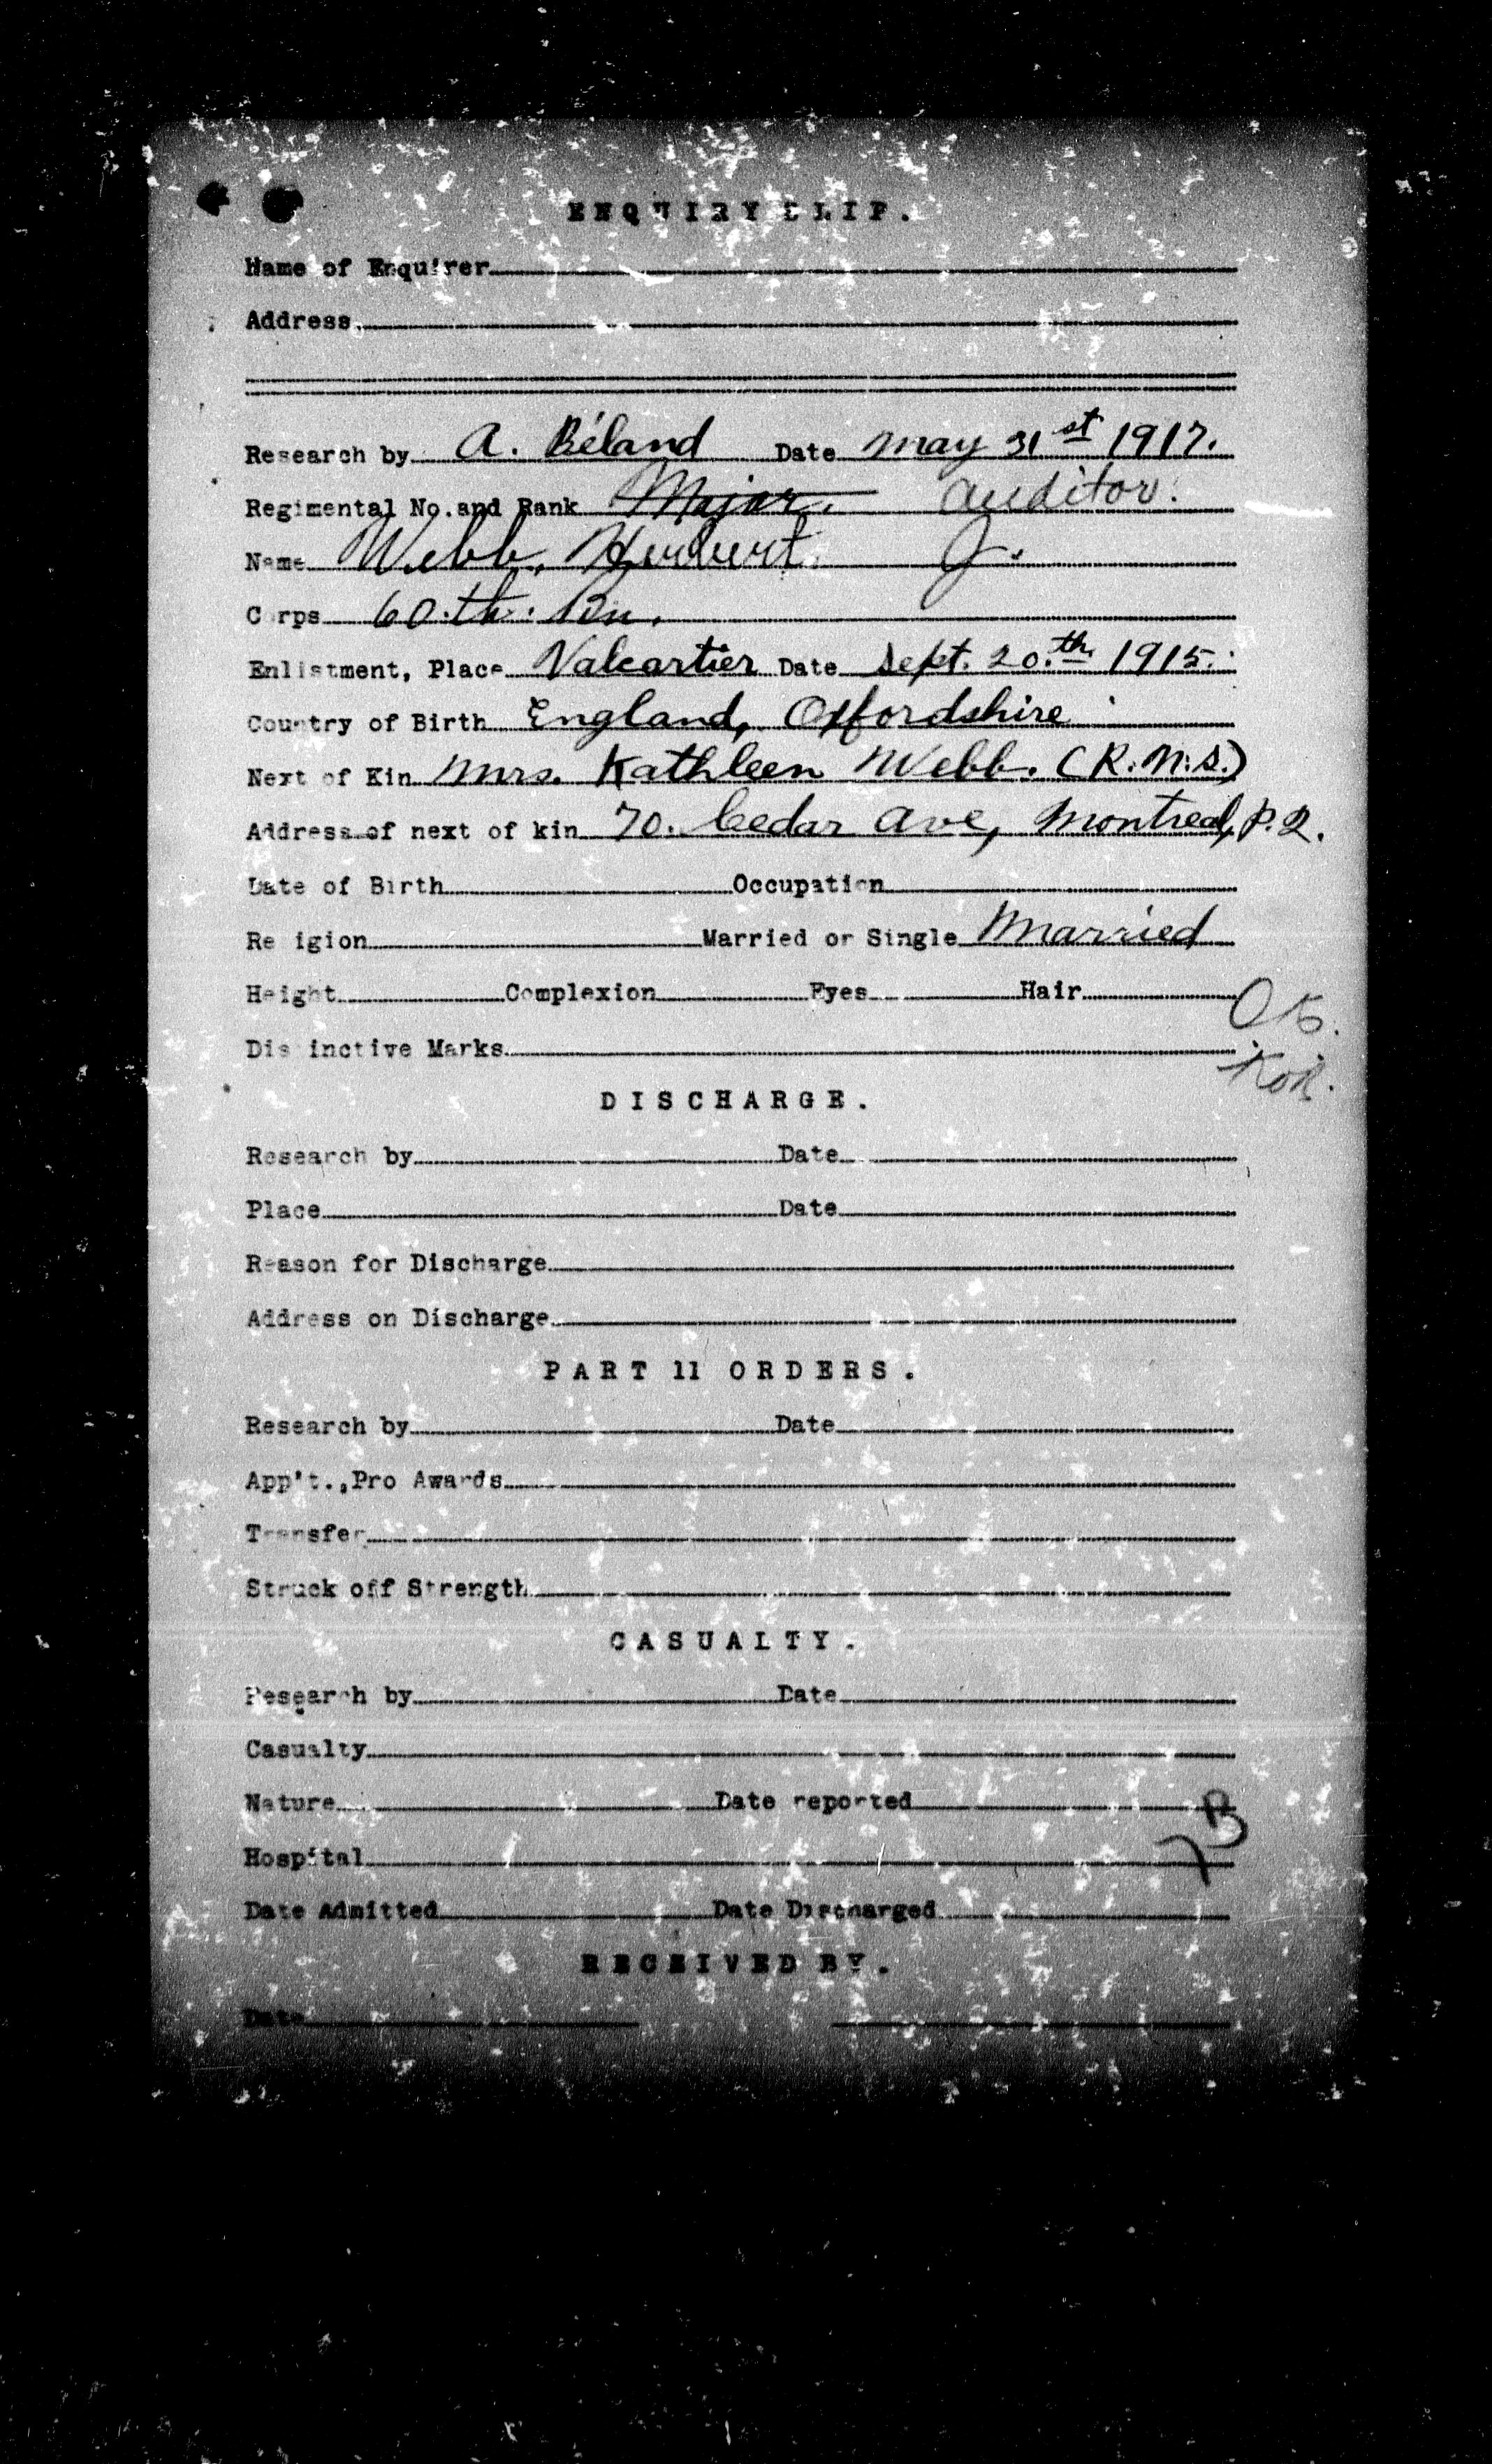 ENQUIRY SLIP.
Name of Enquirer
Address
Research by A. Béland Date May 31st 1917.
Regimental No. and Rank Major. Auditor.
Name Webb, Herbert. J.
Corps 60.th. Bn.
Enlistment, Place Valcartier Date Sept. 20.th 1915.
Country of Birth England, Oxfordshire
Next of Kin Mrs. Kathleen Webb. (R.N.S.)
Address of next of kin 70. Cedar Ave, Montreal, P.Q.
Date of Birth Occupation
Religion Married or Single Married
Height Complexion Eyes Hair
Distinctive Marks
DISCHARGE.
Research by Date
Place Date
Reason for Discharge
Address on Discharge
PART 11 ORDERS.
Research by Date
App't., Pro Awards
Transfer
Struck off Strength
CASUALTY.
Research by Date
Casualty
Nature Date reported
Hospital
Date Admitted Date Discharged
RECEIVED BY.
Date